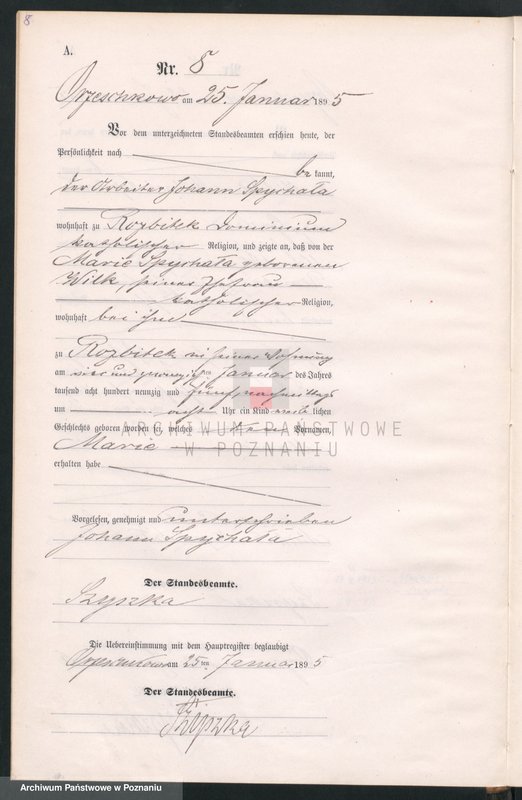 8
A.
Nr. 8
Orzeschkowo am 25. Januar 1895
Vor dem unterzeichneten Standesbeamten erschien heute, der
Persönlichkeit nach be kannt,
der Arbeiter Johann Spychała
wohnhaft zu Rozbitek Dominium
katholischer Religion, und zeigte an, daß von der
Marie Spychała geborenen
Wilk, seiner Ehefrau
katholischer Religion,
wohnhaft bei ihm
zu Rozbitek in seiner Wohnung
am vier und zwanzigsten Januar des Jahres
tausend acht hundert neunzig und fünf nachmittags
um acht Uhr ein Kind weib lichen
Geschlechts geboren worden sei, welches Vornamen,
Marie
erhalten habe
ARCHIWUM PAŃSTWOWE
W POZNANIU
Vorgelesen, genehmigt und unterschrieben
Johann Spychała
Der Standesbeamte.
Szyszka
Die Uebereinstimmung mit dem Hauptregister beglaubigt
Orzeschkowo am 25ten Januar 1895
Der Standesbeamte.
Szyszka
Archiwum Państwowe w Poznaniu